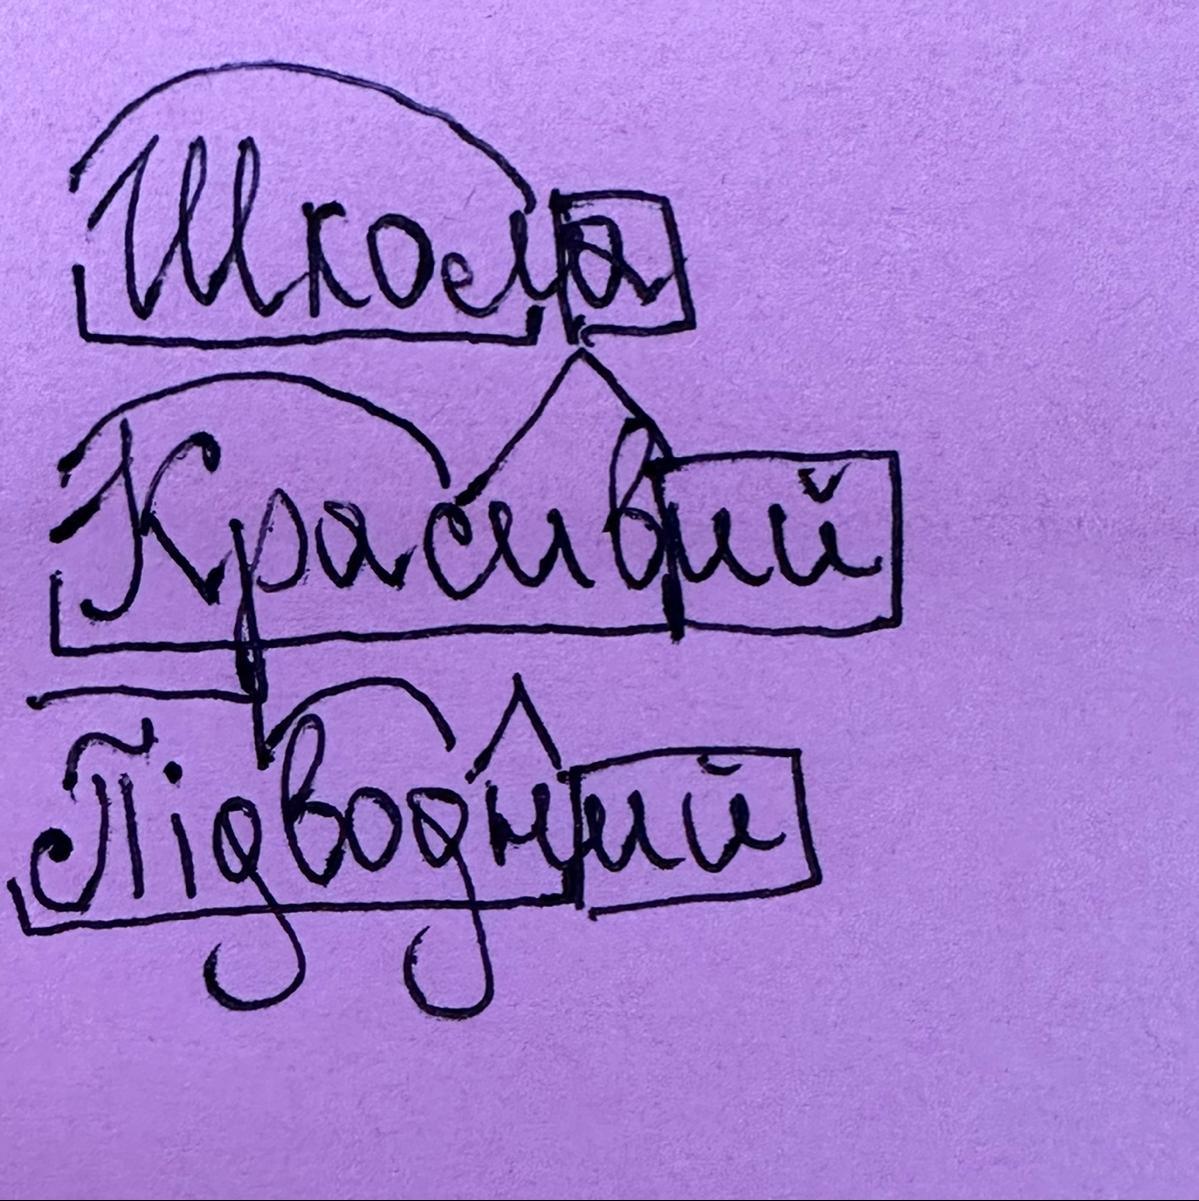 Школа
Красивий
Підводний